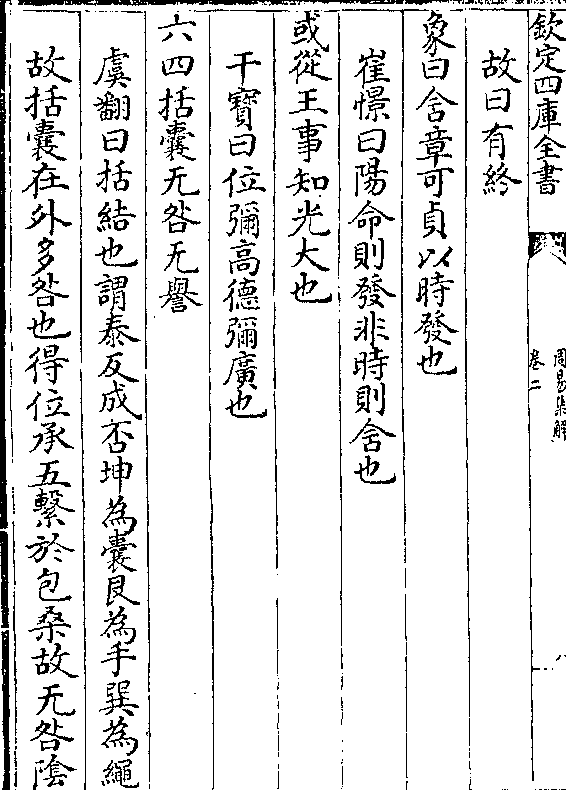 欽定四庫全書
周易集解
卷二
八
故曰有終
象曰含章可貞以時發也
崔憬曰陽命則發非時則含也
或從王事知光大也
干寶曰位彌高德彌廣也
六四括囊无咎无譽
虞翻曰括結也謂泰反成否坤為囊艮為手巽為繩
故括囊在外多咎也得位承五繫於包桑故无咎陰